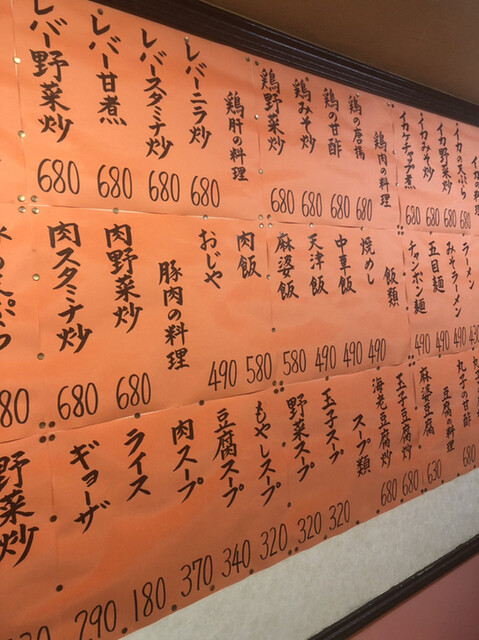 イカの料理
イカの天ぷら 680
イカ野菜炒 680
イカみそ炒 680
イカチャップ煮 680
鶏肉の料理
鶏の唐揚 680
鶏の甘酢 680
鶏みそ炒 680
鶏野菜炒 680
鶏肝の料理
レバーニラ炒 680
レバースタミナ炒 680
レバー甘煮 680
レバー野菜炒 680
ラーメン
みそラーメン 490
五目麺 490
チャンポン麺 490
飯類
焼めし 490
中華飯 490
天津飯 490
麻婆飯 580
肉飯 580
おじや 490
豚肉の料理
肉野菜炒 680
肉スタミナ炒 680
丸子の甘酢 680
豆腐の料理
麻婆豆腐 630
玉子豆腐炒 680
海老豆腐炒 680
スープ類
玉子スープ 320
野菜スープ 320
もやしスープ 320
豆腐スープ 340
肉スープ 370
ライス 180
ギョーザ 290
野菜炒